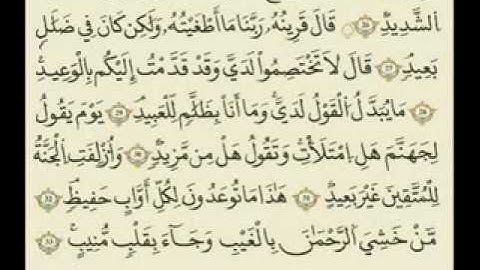 ٱلشَّدِيدِ ٢٦ قَالَ قَرِينُهُۥ رَبَّنَا مَآ أَطْغَيْتُهُۥ وَلَٰكِن كَانَ فِى ضَلَٰلٍۭ
بَعِيدٍ ٢٧ قَالَ لَا تَخْتَصِمُوا۟ لَدَىَّ وَقَدْ قَدَّمْتُ إِلَيْكُم بِٱلْوَعِيدِ
٢٨ مَا يُبَدَّلُ ٱلْقَوْلُ لَدَىَّ وَمَآ أَنَا۠ بِظَلَّٰمٍ لِّلْعَبِيدِ ٢٩ يَوْمَ نَقُولُ
لِجَهَنَّمَ هَلِ ٱمْتَلَأْتِ وَتَقُولُ هَلْ مِن مَّزِيدٍ ٣٠ وَأُزْلِفَتِ ٱلْجَنَّةُ
لِلْمُتَّقِينَ غَيْرَ بَعِيدٍ ٣١ هَٰذَا مَا تُوعَدُونَ لِكُلِّ أَوَّابٍ حَفِيظٍ ٣٢
مَّنْ خَشِىَ ٱلرَّحْمَٰنَ بِٱلْغَيْبِ وَجَآءَ بِقَلْبٍ مُّنِيبٍ ٣٣